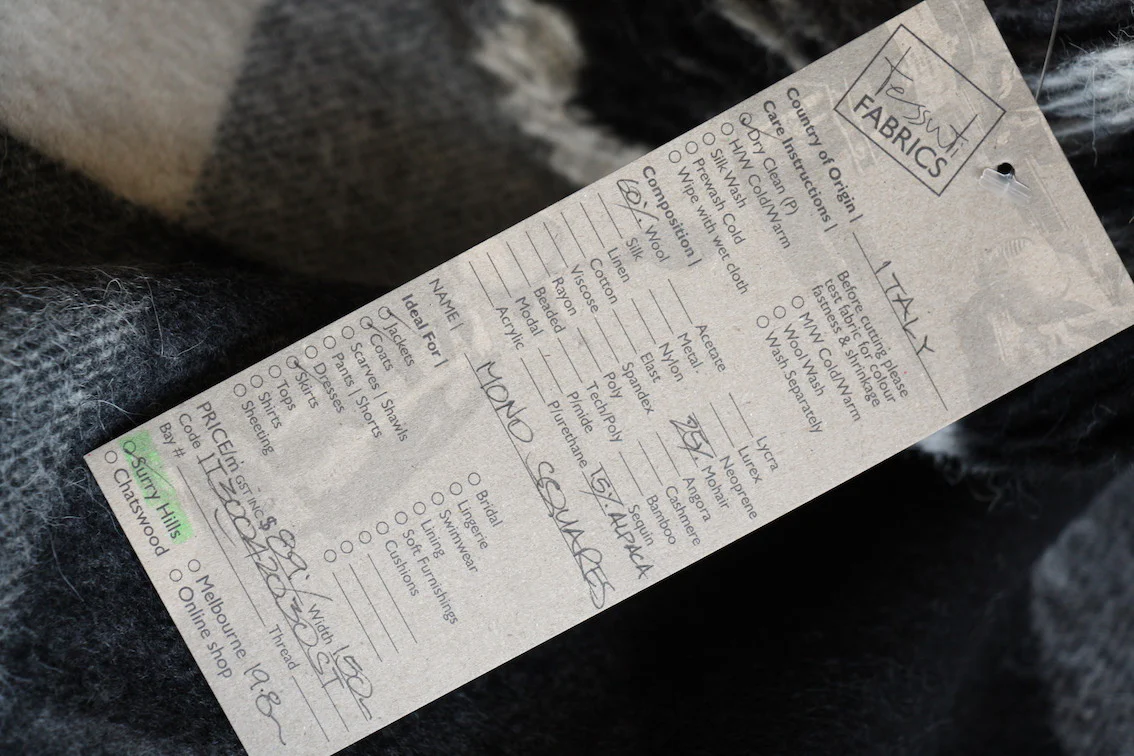 tessuti
FABRICS
Country of Origin | ITALY
Care Instructions |
Dry Clean (P)
H/W Cold/Warm
Silk Wash
Prewash Cold
Wipe with wet cloth
Before cutting please
test fabric for colour
fastness & shrinkage
M/W Cold/Warm
Wool Wash
Wash Separately
Composition |
60% Wool
Silk
Linen
Cotton
Viscose
Rayon
Beaded
Modal
Acrylic
Acetate
Metal.
Nylon
Elast
Spandex
Poly
Tech/Poly
P/mide
P/urethane
Lycra
Lurex
Neoprene
25% Mohair
Angora
Cashmere
Bamboo
Sequin
15% ALPACA
NAME | MONO SQUARES
Ideal For |
Jackets
Coats
Scarves | Shawls
Pants | Shorts
Dresses
Skirts
Tops
Shirts
Sheeting
Bridal
Lingerie
Swimwear
Lining
Soft Furnishings
Cushions
PRICE/m GST INC. $ 89./ Width 150
Code
Bay # Thread
Surry Hills
Chatswood
Melbourne 19.8m
Online shop